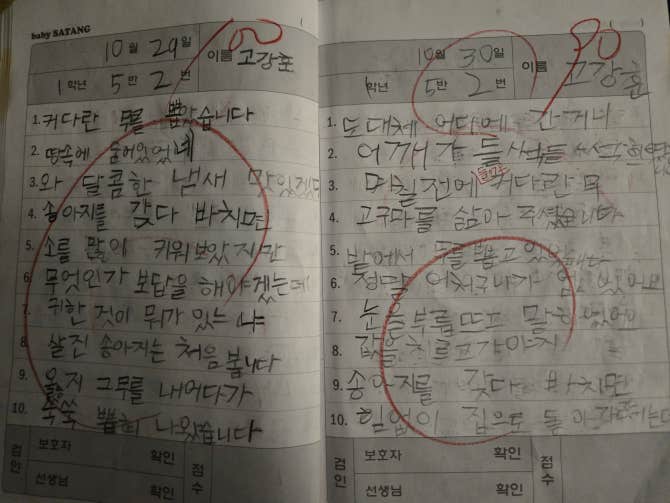 baby SATANG
10월 29일 이름 고강훈 100
1학년 5반 2번
1. 커다란 무를 뽑았습니다
2. 땅속에 숨어있었네
3. 와 달콤한 냄새 맛있겠다
4. 송아지를 갖다 바치면
5. 소를 많이 키워보았지만
6. 무엇인가 보답을 해야겠는데
7. 귀한 것이 뭐가 있느냐
8. 살진 송아지는 처음 봅니다
9. 을지 그무를 내어다가
10. 쑥쑥 뽑혀 나왔습니다
검인 보호자 확인 점수
선생님 확인
10월 30일 이름 고강훈 90
1학년 5반 2번
1. 도대체 어디에 간거니
2. 어깨가 들썩들썩
3. 며칠전에 커다란 무
4. 고구마를 삶아 주셨습니다
5. 밭에서 무를 뽑고
6. 정말 어처구니가
7. 눈을 부릅뜨고 말
8. 값을 치르고
9. 송아지를 갖다 바치면
10. 힘없이 집으로 돌아
검인 보호자 확인 점수
선생님 확인